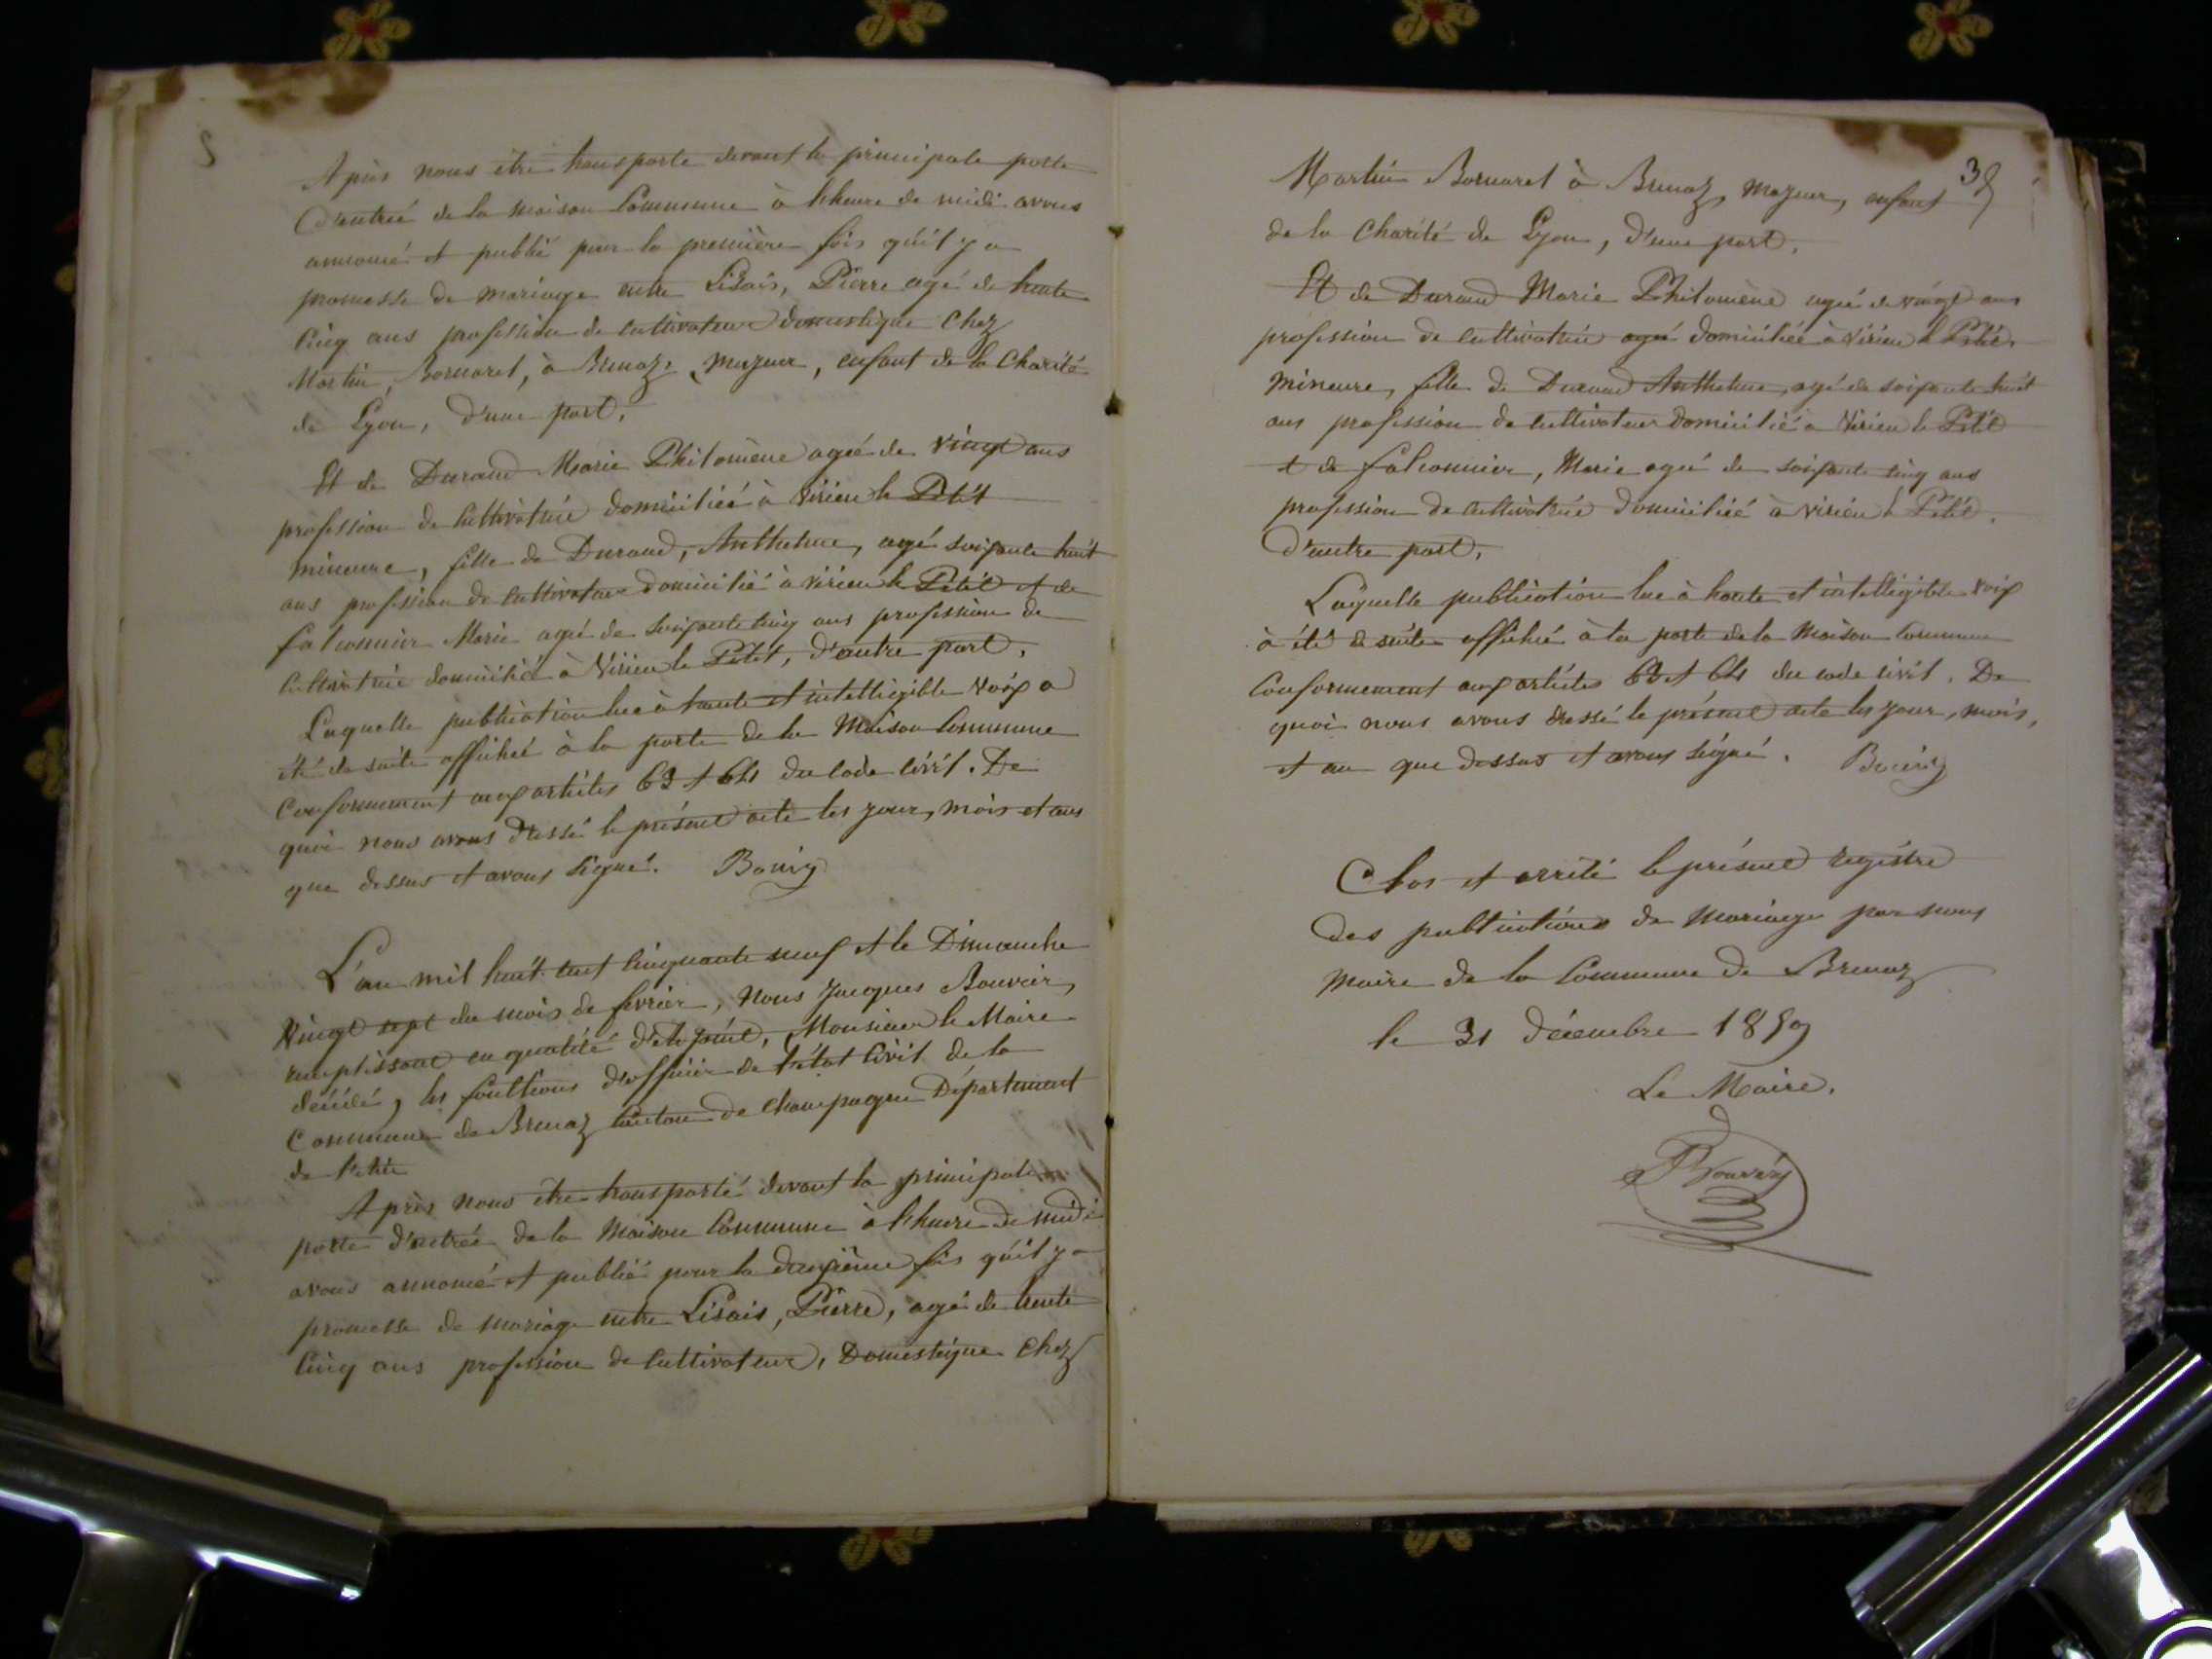 Après nous être transporté devant la principale porte
d'entrée de la maison Commune à l'heure de midi avons
annoncé et publié pour la première fois qu'il y a
promesse de mariage entre Lisais, Pierre agé de trente
cinq ans profession de cultivateur domestique chez
Martin, Bornaret, à Brenaz, majeur, enfant de la Charité
de Lyon, d'une part.
Et de Durand Marie Philomène agée de vingt ans
profession de cultivatrice domiciliée à Virieu le Petit
mineure, fille de Durand, Anthelme, agé soixante huit
ans profession de cultivateur domicilié à Virieu le Petit et de
falconnier Marie agée de soixante cinq ans profession de
cultivatrice domiciliée à Virieu le Petit, d'autre part.
Laquelle publication lue à haute et intelligible voix a
été de suite affichée à la porte de la Maison Commune
Conformement aux articles 63 et 64 du code civil. De
quoi nous avons dressé le présent acte les jour, mois et ans
que dessus et avons signé. Bouvier
L'an mil huit cent cinquante neuf et le Dimanche
vingt sept du mois de fevrier, Nous Jacques Bouvier,
remplissant en qualité d'adjoint, Monsieur le Maire
décédé, les fonctions d'officier de l'état civil de la
Commune de Brenaz Canton de Champagne Département
de l'Ain
Après nous être transporté devant la principale
porte d'entrée de la Maison Commune à l'heure de midi
avons annoncé et publié pour la deuxième fois qu'il y a
promesse de mariage entre Lisais, Pierre, agé de trente
cinq ans profession de cultivateur, Domestique chez
35
Martin Bornaret à Brenaz, majeur, enfant
de la Charité de Lyon, d'une part.
Et de Durand Marie Philomène agée de vingt ans
profession de cultivatrice agée domiciliée à Virieu le Petit.
mineure, fille de Durand Anthelme, agé de soixante huit
ans profession de cultivateur Domicilié à Virieu le Petit
et de falconnier, Marie agée de soixante cinq ans
profession de cultivatrice domiciliée à Virieu le Petit.
D'autre part.
Laquelle publication lue à haute et intelligible voix
à été de suite affichée à la porte de la Maison Commune
Conformement aux articles 63 et 64 du code civil. De
quoi nous avons dressé le présent acte les jour, mois,
et an que dessus et avons signé. Bouvier
Clos et arrêté le présent registre
des publications de Mariage par nous
Maire de la Commune de Brenaz
le 31 décembre 1859
Le Maire.
Bouvier